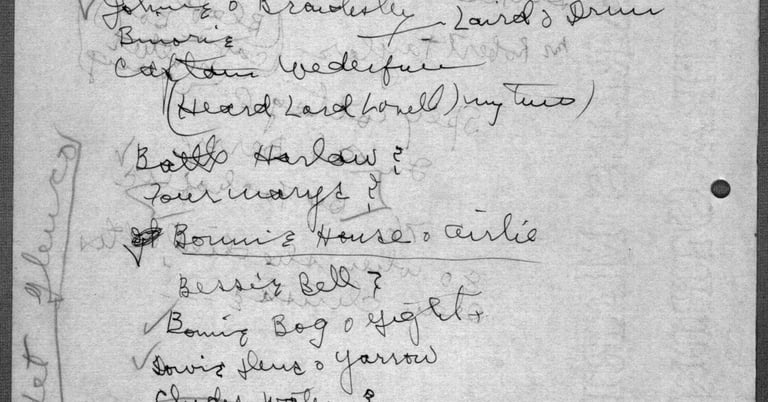 Johnie o Braidesley Laird o Drum
Binorie
Captain Wederfurn
(Heard Lord Lovell) my tune)
Battle Harlaw &
Four Marys &
Bonnie House o Airlie
Bessie Bell &
Bonnie Bog o Gight +
Dowie Dens o Yarrow
Clydes Water &